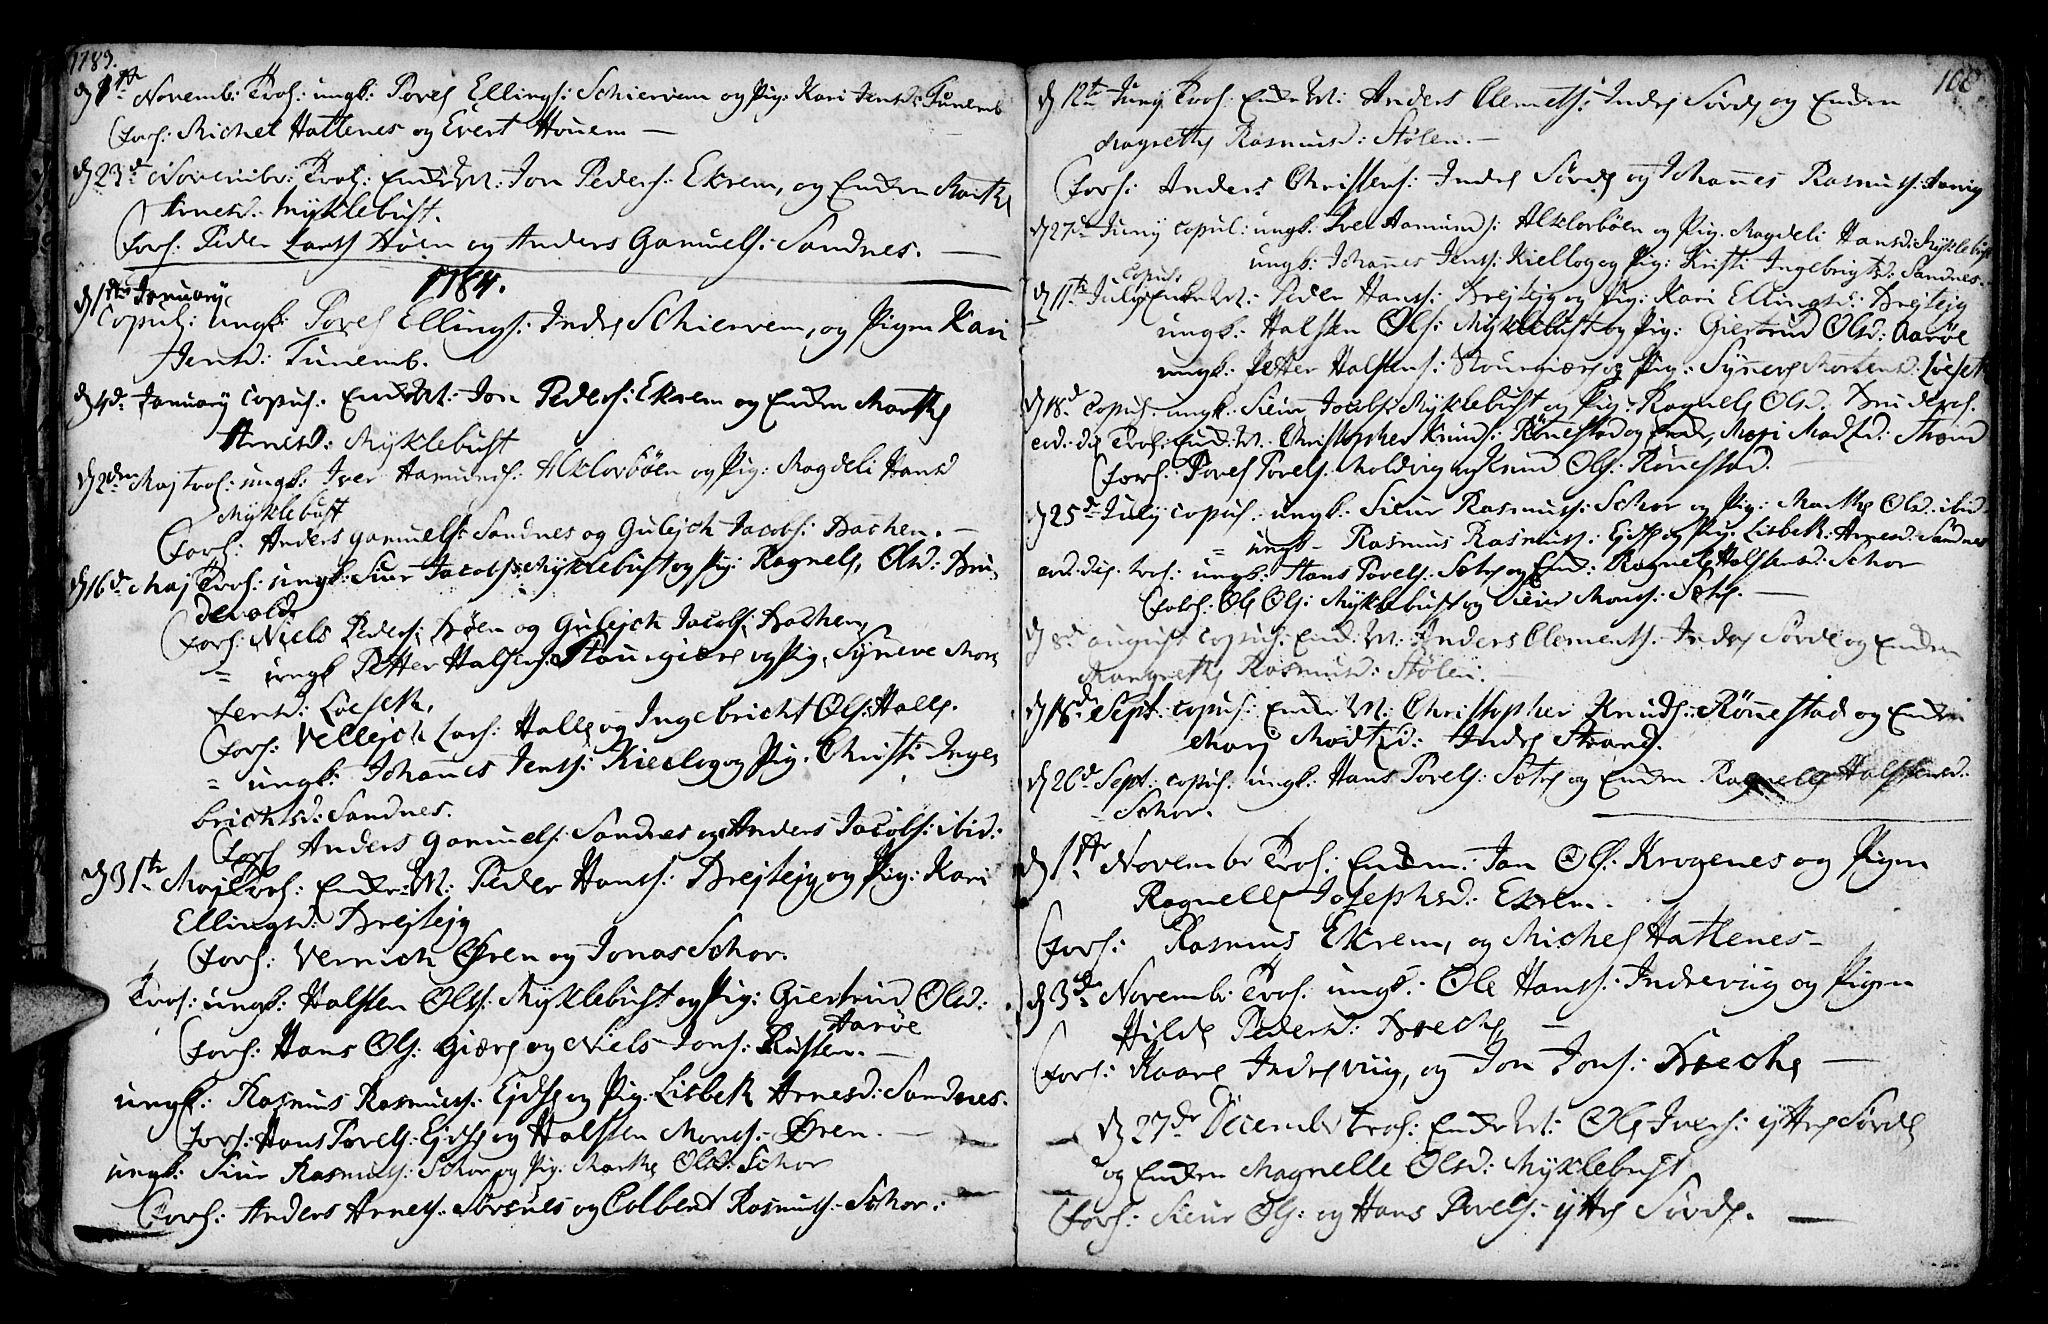 1783.
d 1te Novemb: Trol: ungk: Povel Ellings: Schiervem og Pig: Kari Jensd: Tunemb
Forl: Michel Hattenes og Evert Houem —
d 23de Novembr: Trol: Enkem: Jon Peders: Ekrem, og Enken Marthe
Arnesd: Myklebust.
Forl: Peder Larss Høen og Anders Gamuels: Sandnes. —
1784.
d 1te January
Copul: ungk: Povel Ellings: Indre Schiervem, og Pigen Kari
Jensd: Tunemb.
d 4de January copul: EnkeM: Jon Peders: Ekrem og Enken Marthe
Arnesd: Myklebust
d 2den Maj trol: ungk: Iver Hamunds: Alklovbøen og Pig: Magdeli Hansd
Myklebust
Forl: Anders Gamuels: Sandnes og Gulejch Jacobs: Bachen. —
d 16de Maj Trol: ungk: Siur Jacobs: Myklebust og Pig: Ragnele Olsd: Bru-
devold
Forl: Niels Peders: Høen og Gulejch Jacobs: Bachen,
= ungk Petter Halstens: Stourgiære og Pig: Syneve Mor-
tensd: Løeseth,
Forl: Vellejch Lars: Halle og Ingebricht Ols: Halle.
= ungk: Johannes Jenss: Kiellog og Pig: Christi Inge-
brichtsd: Sandnes.
Forl Anders Gamuels: Sandnes og Anders Jacobs: ibid:
d 31te Maj Trol: EnkeM: Peder Hanss: Brejlejg og Pig: Kari
Ellingsd: Brejlejg
Forl: Vernich Øren og Jonas Schor.
Trol: ungk: Halsten Olss: Myklebust og Pig: Giertrud Olsd:
Aarøe
Forl: Hans Ols: Giære og Niels Jons: Rusten. —
ungk: Rasmus Rasmuss: Ejdse og Pig: Lisbeth Arnesd: Sandnes.
Forl: Hans Povels: Ejdse og Halsten Monss: Øren. —
ungk: Siur Rasmuss: Schor og Pig: Marthe Olsd: Schor
Forl: Anders Arness: Sørsnes og Colbent Rasmuss: Schor.
108
d 12te Juny Trol: EnkeM: Anders Clemets: Indre Sørde og Enken
Magrethe Rasmusd: Stølen. —
Forl: Anders Christens: Indre Sørde og Johannes Rasmuss:
d 27de Juny copul: ungk: Iver Hamunds: Alklovbøen og Pig: Magdeli Hansd: Myklebust
ungk: Johannes Jenss: Kiellog og Pig: Kristi Ingebrigtsd: Sandnes.
d 11te July copul: EnkeM: Peder Hanss: Brejlejg og Pig: Kari Ellingsd: Brejlejg
ungk: Halsten Ols: Myklebust og Pig: Giertrud Olsd: Aarøe
ungk: Petter Halstens: Stourgiære og Pig: Syneve Mortensd: Løeset
d 18de copul: ungk: Siur Jacobs: Myklebust og Pig: Ragnele Olsd: Brudevol.
eod: die Trol: EnkM: Christopher Knuds: Rønnestad og Enke, Mari Madtsd: Strand
Forl: Povel Povels: Moldvig og Knud Ols: Rønnestad.
d 25de July copul: ungk: Siur Rasmuss: Schor og Pig: Marthe Olsd: ibid
= ungk - Rasmus Rasmuss: Ejdse og Pig: Lisbeth: Arnesd: Sandnes
eod: die: trol: ungk: Hans Povels: Sætre og Enk: Ragnele Halstensd: Schor
Forl: Ole Ols: Myklebust og Siur Monss: Sætre. —
d 8de August copul: Enk: M: Anders Clements: Indre Sørde og Enken
Mangrethe Rasmusd: Stølen. —
d 18de Sept: copul: EnkeM: Christopher Knuds: Rønnestad og Enken
Mari Madtsd: Indre Strand.
d 26de Sept: copul: ungk: Hans Povels: Sætre og Enken Ragnele Halstensd:
Schor.
d 1te Novembr Trol: Enkem: Jan Ols: Krogenes og Pigen
Ragnele Josephsd: Ekrem.
Forl: Rasmus Ekrem, og Michel Hattenes —
d 3de Novembr: Trol: ungk: Ole Hanss: Indrevug og Pigen
Hilde Pedersd: Breche, —
Forl: Kaare Indrevug, og Jon Jons: Breche —
d 27de Decembr trol: EnkeM: Ole Ivers: ijttre Sørde
og Enken Magnelle Olsd: Myklebust
Forl: Siur Ols: og Hans Povels: ijttre Sørde. —